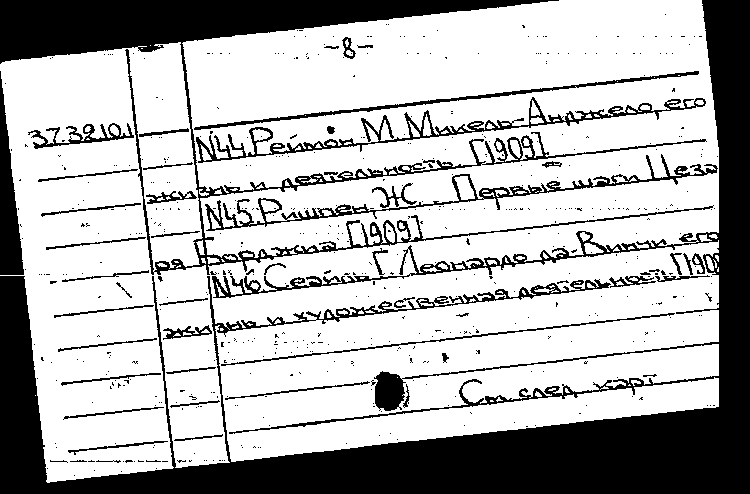 -8-
37.32.10.1
N44.Реймон, М. Микель-Анджело, его
жизнь и деятельность. [1909].
N45.Ришпен, Ж. Первые шаги Цеза
ря Борджиа [1909]
N46.Сеайль, Г. Леонардо да-Винчи, его
жизнь и художественная деятельность. [190
См. след. карт